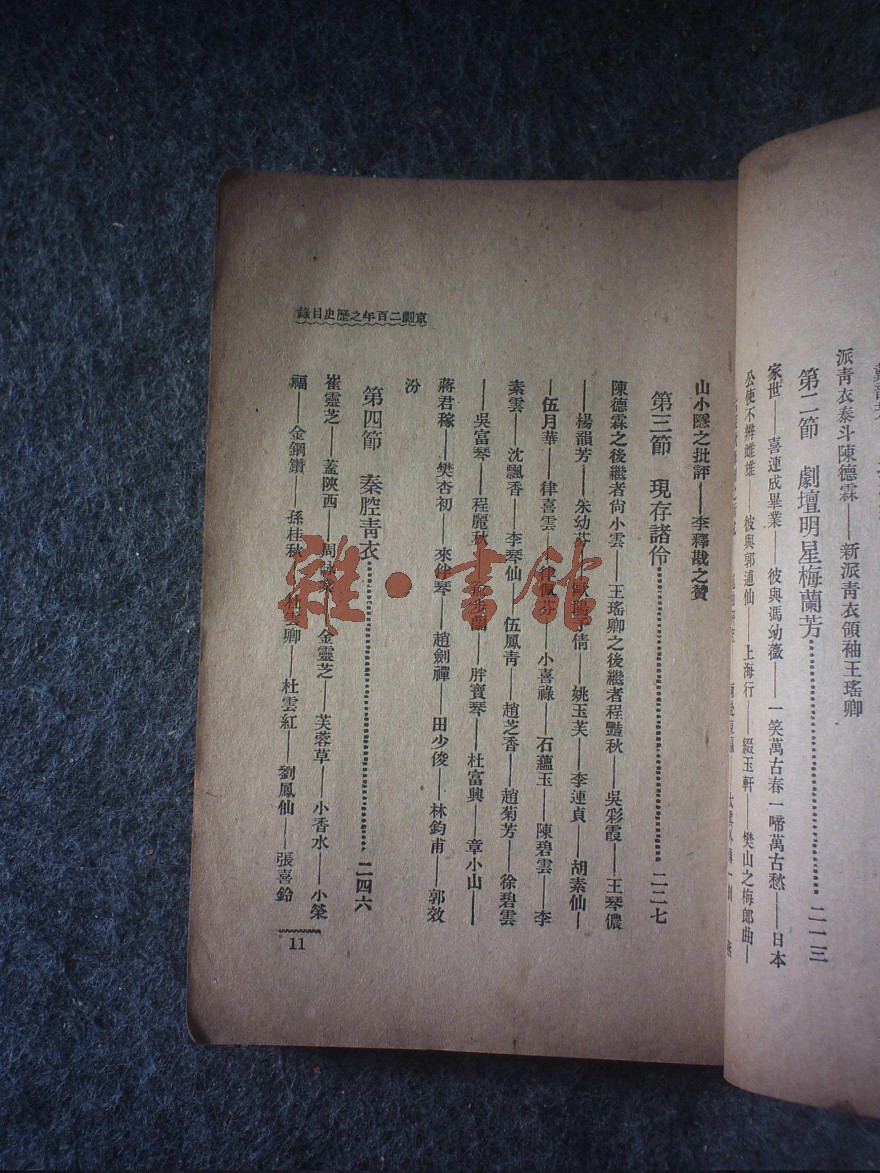 派青衣泰斗陳德霖——新派青衣領袖王瑤卿
第二節 劇壇明星梅蘭芳 二一三
家世——喜連成畢業——彼與馮幼薇——一笑萬古春一啼萬古愁——日本
公使不辨雌雄——彼與郭逋仙——上海行——綴玉軒——樊山之梅郎曲——
山小隱之批評——李釋戡之贊
第三節 現存諸伶 二二七
陳德霖之後繼者尙小雲——王瑤卿之後繼者程豔秋——吳彩霞——王琴儂
——楊韻芳——朱幼芬——歐陽予倩——姚玉芙——李連貞——胡素仙——
伍月華——律喜雲——小喜祿——石蘊玉——陳碧雲——李
素雲——沈飄香——李琴仙——伍鳳青——趙芝香——趙菊芳——徐碧雲
——吳富琴——程麗秋——胖寶琴——杜富興——章小山——
蔣君稼——樊杏初——來紗琴——趙劍禪——田少俊——林鈞甫——郭效
汾
第四節 秦腔青衣 二四六
崔靈芝——蓋陝西——周詠棠——金靈芝——芙蓉草——小香水——小榮
福——金鋼鑽——孫桂秋——杜雲卿——杜雲紅——劉鳳仙——張喜鈴
京劇二百年之歷史目錄
11
雜·書館